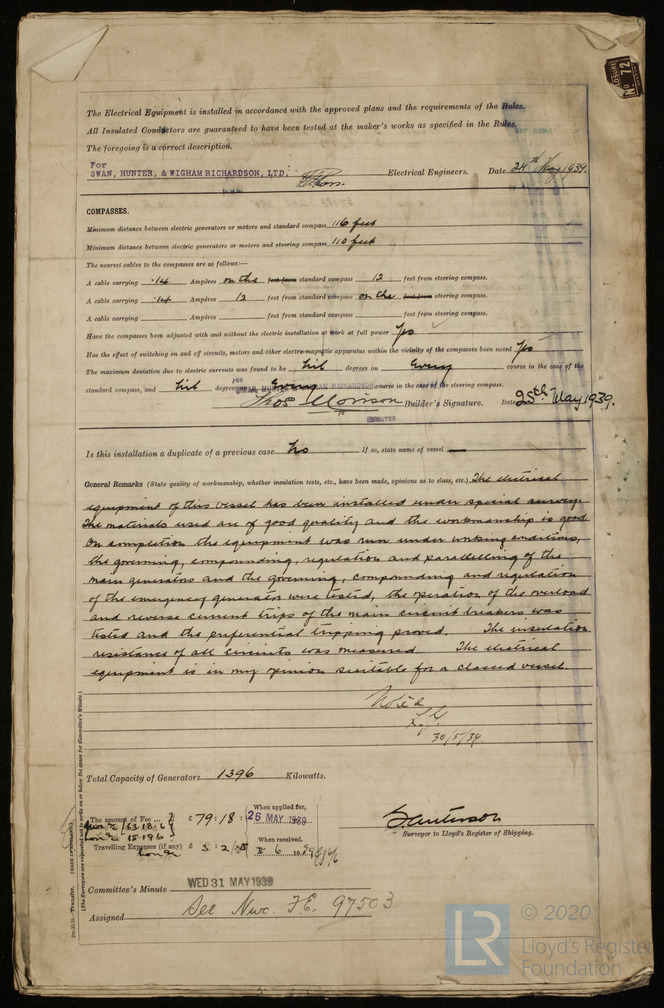 ENCLOSURE
No 72
The Electrical Equipment is installed in accordance with the approved plans and the requirements of the Rules.
All Insulated Conductors are guaranteed to have been tested at the maker's works as specified in the Rules.
The foregoing is a correct description.
For
SWAN, HUNTER, & WIGHAM RICHARDSON, LTD. Electrical Engineers. Date 24th May 1939.
COMPASSES.
Minimum distance between electric generators or motors and standard compass 116 feet
Minimum distance between electric generators or motors and steering compass 110 feet
The nearest cables to the compasses are as follows:—
A cable carrying .14 Ampères on the feet from standard compass 12 feet from steering compass.
A cable carrying .14 Ampères 12 feet from standard compass on the feet from steering compass.
A cable carrying Ampères feet from standard compass feet from steering compass.
Have the compasses been adjusted with and without the electric installation at work at full power Yes
Has the effect of switching on and off circuits, motors and other electro-magnetic apparatus within the vicinity of the compasses been noted Yes
The maximum deviation due to electric currents was found to be Nil degrees on Every course in the case of the
standard compass, and Nil degrees on Every course in the case of the steering compass.
FOR SWAN, HUNTER, & WIGHAM RICHARDSON
Thos Morison Builder's Signature. Date 25th May 1939.
DIRECTOR
Is this installation a duplicate of a previous case No If so, state name of vessel —
General Remarks (State quality of workmanship, whether insulation tests, etc., have been made, opinions as to class, etc.) The electrical
equipment of this vessel has been installed under special survey.
The materials used are of good quality and the workmanship is good.
On completion the equipment was run under working conditions,
the governing, compounding, regulation and parallelling of the
main generators and the governing, compounding and regulation
of the emergency generator were tested, the operation of the overload
and reverse current trips of the main circuit breakers was
tested and the preferential tripping proved. The insulation
resistance of all circuits was measured. The electrical
equipment is in my opinion suitable for a classed vessel.
Noted
30/5/39.
Total Capacity of Generators 1396 Kilowatts.
The amount of Fee ... £ 79 : 18 : When applied for, 26 MAY 1939
Nwc £63.18.6
London 15.19.6
Travelling Expenses (if any) £ 3 : 2 : When received. 6 19
London
Surveyor to Lloyd's Register of Shipping.
Committee's Minute WED 31 MAY 1939
Assigned See Nwc. F.E. 97503
Transfer. (MADE IN ENGLAND.)
(The Surveyors are requested not to write on or below the space for Committee's Minute.)
LR
© 2020
Lloyd's Register
Foundation